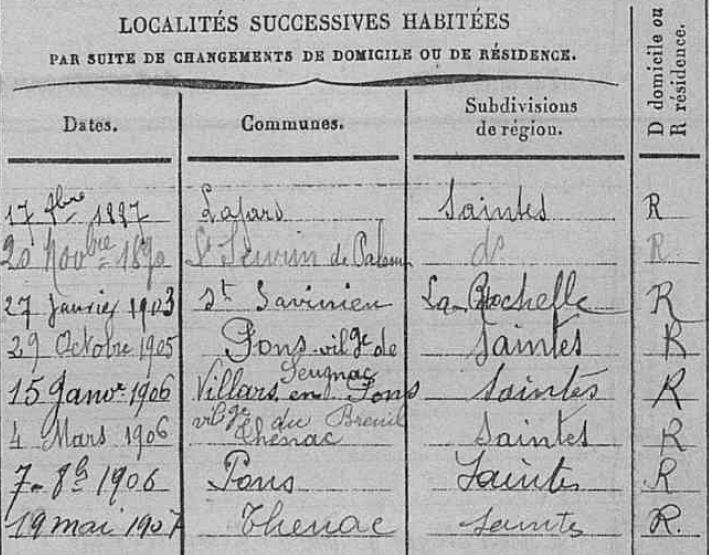 LOCALITÉS SUCCESSIVES HABITÉES
PAR SUITE DE CHANGEMENTS DE DOMICILE OU DE RÉSIDENCE.
D domicile ou
R résidence.
Dates. Communes. Subdivisions
de région.
17 9bre 1887 Saintes R
20 Novbre 1890 St Seurin de Palenne do R
27 Janvier 1903 St Savinien La Rochelle R
29 Octobre 1905 Pons vilge de Saintes R
Seugnac
15 Janvr 1906 Villars en Pons Saintes R
vilge du Breuil
4 Mars 1906 Thénac Saintes R
7-8bre 1906 Pons Saintes R
19 mai 1907 Thenac Saintes R.